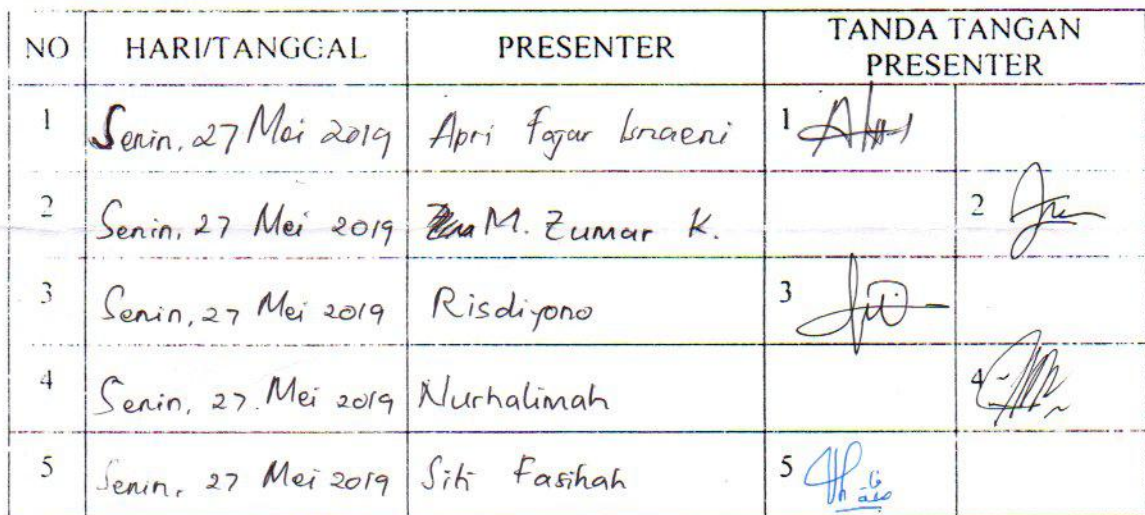 NO HARI/TANGGAL PRESENTER TANDA TANGAN PRESENTER
1 Senin, 27 Mei 2019 Apri Fajar Isnaeni 1
2 Senin, 27 Mei 2019 M. Zumar K. 2
3 Senin, 27 Mei 2019 Risdiyono 3
4 Senin, 27 Mei 2019 Nurhalimah 4
5 Senin, 27 Mei 2019 Siti Fasihah 5